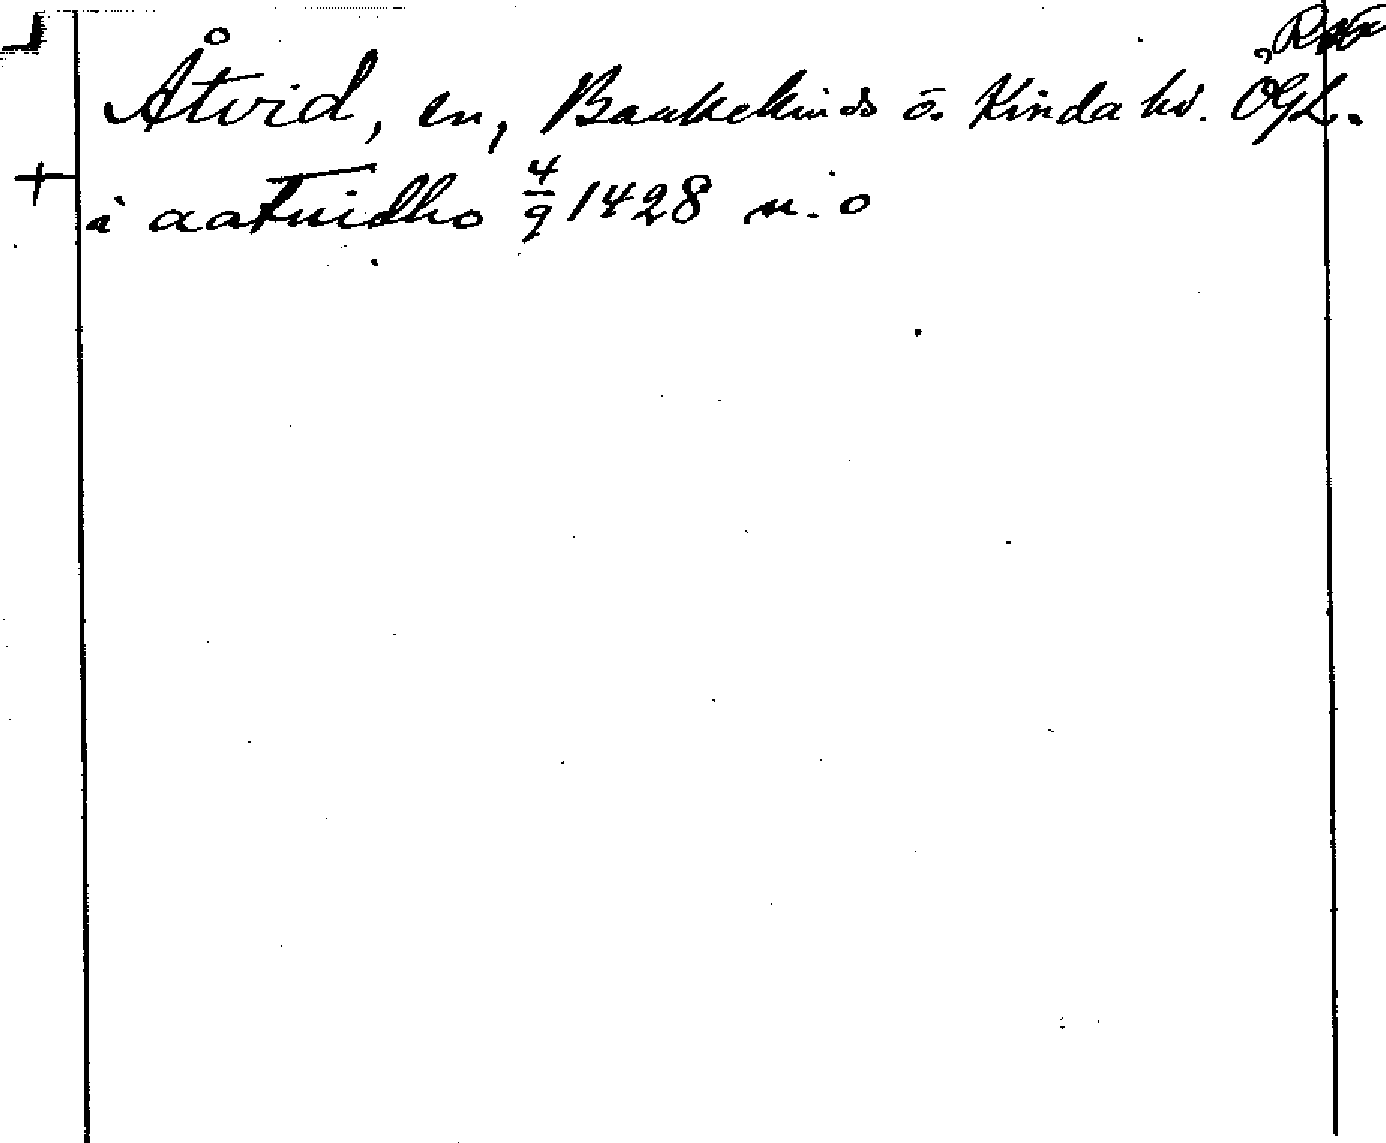 Åtvid, en, Bankekinds o. Kinda hd. ÖGL.
i aatuidho 4/9 1428 n. o